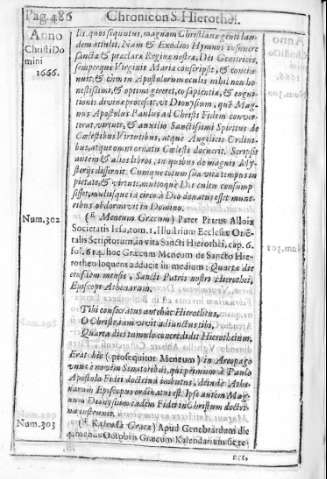 Pag. 486 Chronicon S. Hierothei.
Anno
Christi Do
mini
1666.
lis, quos sequutus, magnam Christiana genti lau-
dem attulit. Nam & Exodios Hymnos insuper
sancta & præclara Regina nostra, Dei Genitricis,
semperque Virginis Maria conscripsit, & conci-
nuit, & cùm in Apostolorum cultu nihil non ho-
nestissimè, & optimè gereret, eo sapientia, & cogni-
tionis divina processit, ut Dionysium, quē Mag-
nus Apostolus Paulus ad Christi Fidem conver-
terat, virtute, & auxilio Sanctissimi Spiritus de
Cælestibus Virtutibus, atque Angelicis Ordini-
bus, atque omni ornatu Cælesti docuerit. Scripsit
autem & alios libros, in quibus de magnis My-
sterijs disseruit. Cumque totum sua vita tempus in
pietate, & virtute, multoque Dei cultu consump-
sisset, multisque à circa à Deo donatus esset mune-
ribus obdormivit in Domino.
Num. 302
( Meneum Græcum) Pater Petrus Alloix
Societatis Iesu, tom. 1. Illustrium Ecclesiæ Oriē-
talis Scriptorum, in vita Sancti Hierothei, cap. 6.
fol. 614. hoc Græcum Meneum de Sancto Hie-
rotheo loquens adducit in medium: Quarta die
eiusdem mensis, Sancti Patris nostri Hierothei,
Episcopi Athenarum.
Tibi consecratus anthac Hierotheus,
O Christe, tam vovit adiunctus tibi,
Quarta dies tumulo concredidit Hierotheum.
Erat hic (prosequitur Meneum) in Areopago
unus è novem Senatoribus, qui primùm à Paulo
Apostolo Fidei doctrina imbutus, deinde Athe-
narum Episcopus ordinatus est. Ipse autem Mag-
num Dionysium eadem Fidei in Christum doctri-
na instruxit.
Num. 303
( Kalenda Græca) Apud Genebrardum die
quarta mensis Octobris Græcum Kalendarium sic ge-